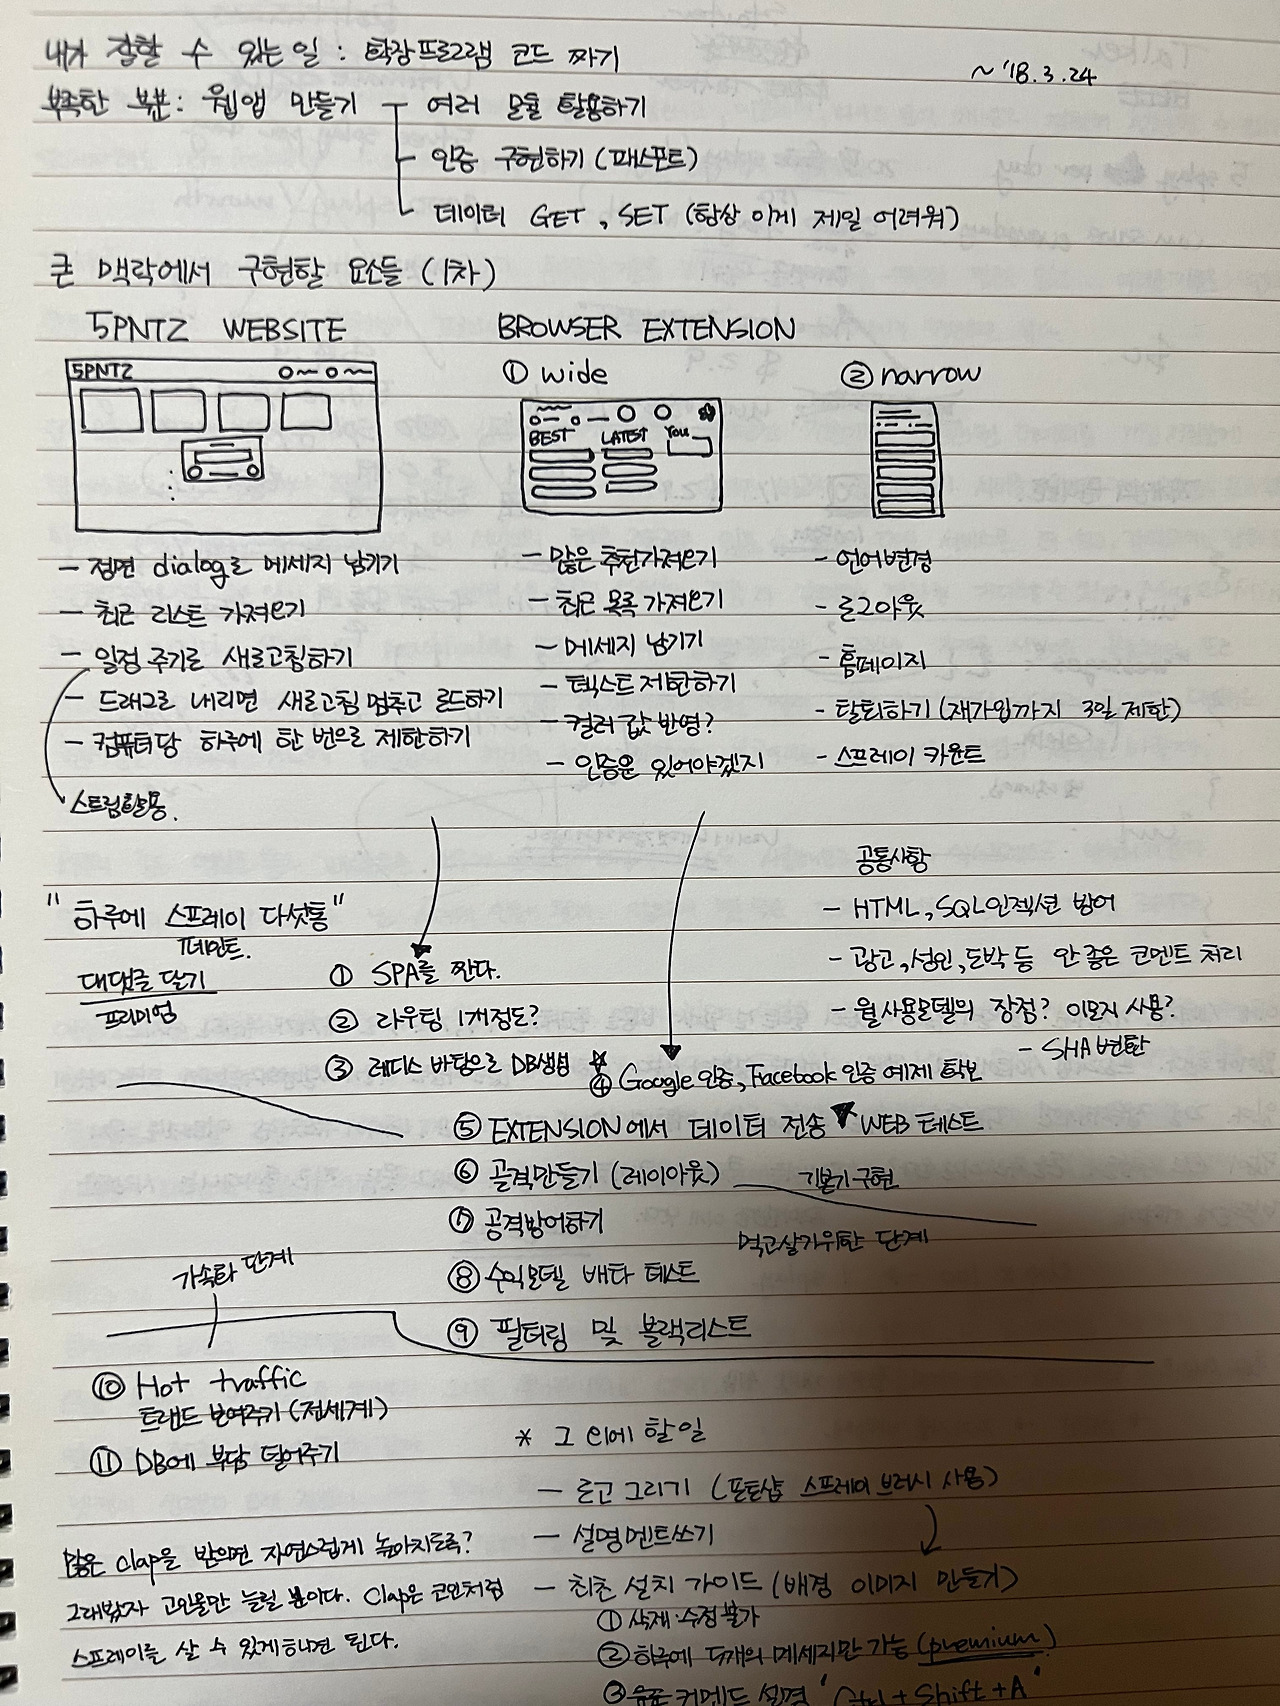 내가 잘할 수 있는 일 : 확장프로그램 코드 짜기
~ '18.3.24
부족한 부분 : 웹앱 만들기
여러 모듈 활용하기
인증 구현하기 (패스포트)
데이터 GET, SET (항상 이게 제일 어려워)
큰 맥락에서 구현할 요소들 (1차)
5PNTZ WEBSITE
5PNTZ
- 정면 dialog로 메세지 남기기
- 최근 리스트 가져오기
- 일정 주기로 새로고침하기
- 드래그로 내리면 새로고침 멈추고 로드하기
- 컴퓨터당 하루에 한 번으로 제한하기
스트림활용.
BROWSER EXTENSION
① wide
BEST LATEST You
- 많은 추천가져오기
- 최근 목록 가져오기
- 메세지 남기기
- 텍스트 제한하기
- 컬러 값 반영?
- 인증은 있어야겠지
② narrow
- 언어변경
- 로그아웃
- 홈페이지
- 탈퇴하기 (재가입까지 3일 제한)
- 스프레이 카운트
공통사항
- HTML, SQL인젝션 방어
- 광고, 성인, 도박 등 안 좋은 코멘트 처리
- 월사용모델의 장점? 이모지 사용?
- SHA변환
"하루에 스프레이 다섯통"
페인트.
대댓글 달기
프리미엄
① SPA를 짠다.
② 라우팅 1개정도?
③ 레디스 바탕으로 DB생성
④ Google 인증, Facebook 인증 예제 확보
⑤ EXTENSION에서 데이터 전송 WEB 테스트
⑥ 골격만들기 (레이아웃)
기본기 구현
⑦ 공격방어하기
먹고살기위한 단계
⑧ 수익모델 베타 테스트
⑨ 필터링 및 블랙리스트
가속화 단계
⑩ Hot traffic
트랜드 보여주기 (전세계)
⑪ DB에 부담 덜어주기
* 그 외에 할일
- 로고 그리기 (포토샵 스프레이 브러시 사용)
- 설명멘트쓰기
- 최초 설치 가이드 (배경 이미지 만들기)
① 삭제·수정 불가
② 하루에 5개의 메세지만 가능 (premium)
③ 커맨드 설명 'Ctrl + Shift + A'
많은 clap을 받으면 자연스럽게 높아지도록?
그래봤자 고인물만 늘릴 뿐이다. Clap은 코인처럼
스프레이를 살 수 있게하면 된다.